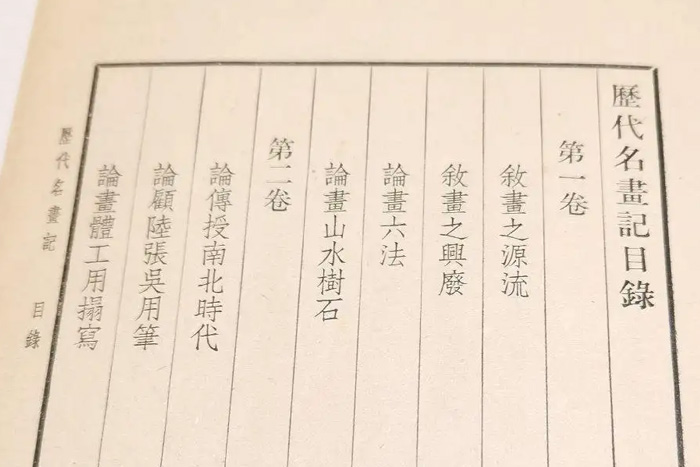 歷代名畫記目錄
第一卷
敘畫之源流
敘畫之興廢
論畫六法
論畫山水樹石
第二卷
論傳授南北時代
論顧陸張吳用筆
論畫體工用搨寫
歷代名畫記 目錄